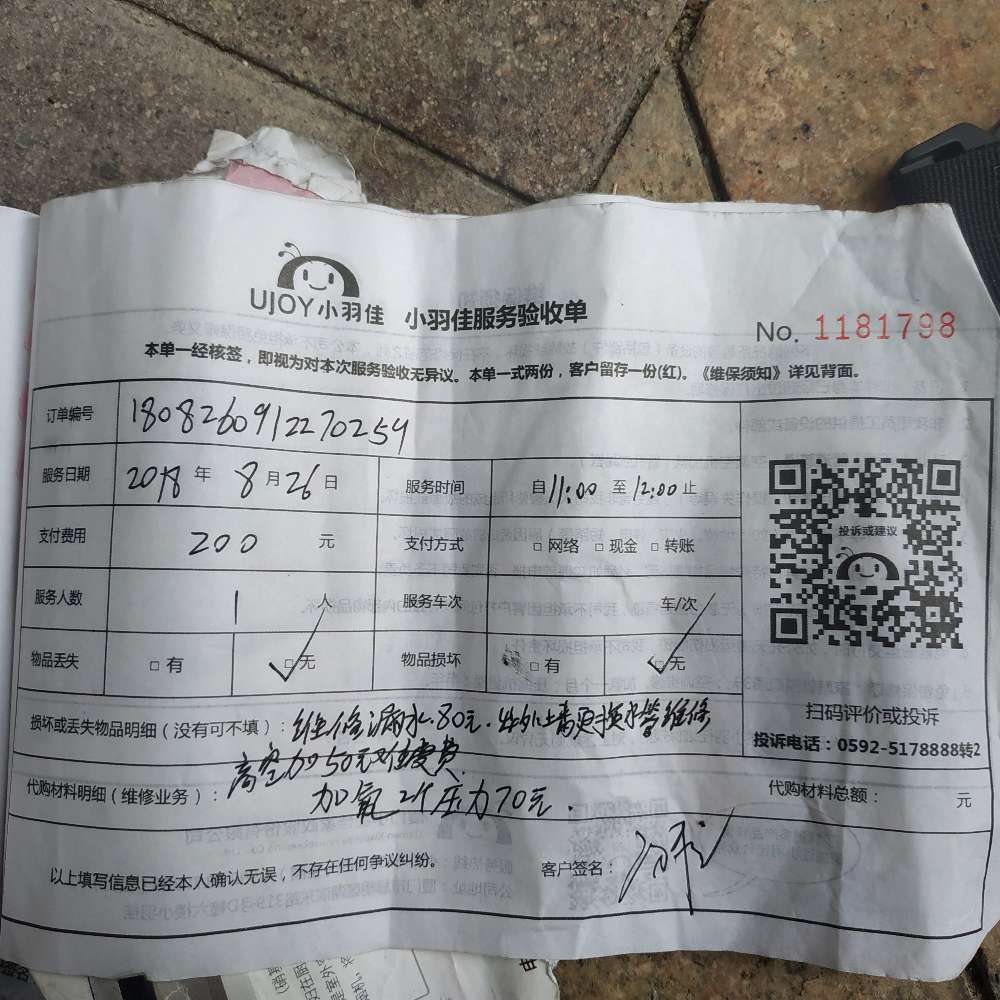 UJOY小羽佳 小羽佳服务验收单
No. 1181798
本单一经核签，即视为对本次服务验收无异议。本单一式两份，客户留存一份(红)。《维保须知》详见背面。
订单编号 1808260912270254
服务日期 2018 年 8 月 26 日 服务时间 自 11:00 至 12:00 止
支付费用 200 元 支付方式 □ 网络 □ 现金 □ 转账
服务人数 1 人 服务车次 车/次
物品丢失 □ 有 □ 无 物品损坏 □ 有 □ 无
投诉或建议
扫码评价或投诉
投诉电话：0592-5178888转2
损坏或丢失物品明细（没有可不填）：维修漏水80元.
高空加50元
代购材料明细（维修业务）：
加氟2个压力70元.
代购材料总额： 元
以上填写信息已经本人确认无误，不存在任何争议纠纷。
客户签名：